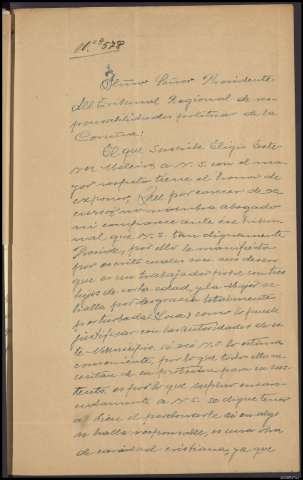 N.º 578
Señor Presidente
del tribunal Regional de res-
ponsabilidades politicas de la
Coruña:
El que suscribe Eligio
a V. S. con el ma-
yor respeto tiene el honor de
exponer: Que por carecer de re-
cursos, no nombra abogado
ni comparece ante ese tribu-
nal que V. S. tan dignamente
Preside, por ello le manifiesta
por escrito
que es un trabajador pobre con tres
hijos de corta edad, y la mujer se
halla por desgracia totalmente
perturbada (Loca) como lo puede
justificar con las autoridades de es-
te Municipio, si así V. S. lo estima
conveniente, por lo que todos ellos ne-
cesitan de su proteccion para su sus-
tento, es por lo que suplico encare-
cidamente a V. S. se digne tener
a bien el perdonarle si en algo
se halla responsable, es una obra
de caridad cristiana, ya que